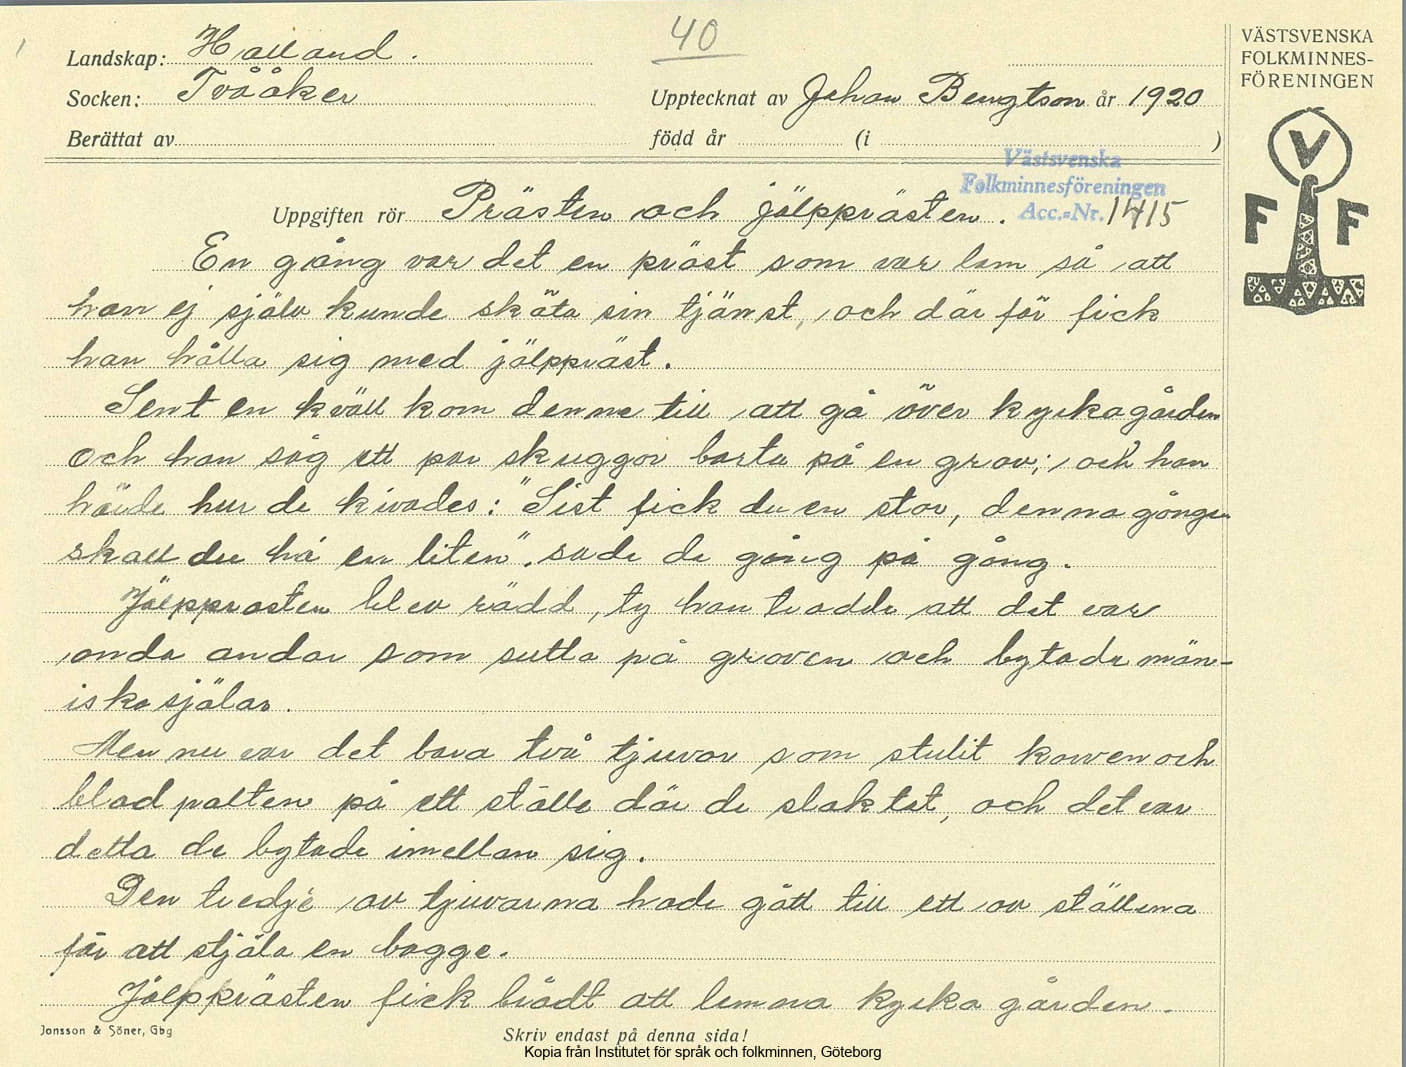 40
Landskap: Halland.
Socken: Tvååker
Upptecknat av Johan Bengtson år 1920
Berättat av
född år (i )
VÄSTSVENSKA
FOLKMINNES-
FÖRENINGEN
V
F F
Västsvenska
Folkminnesföreningen
Acc.-Nr. 1415
Uppgiften rör Prästen och jölpprästen.
En gång var det en präst som var lam så att
han ej själv kunde sköta sin tjänst, och där för fick
han hålla sig med jölppräst.
Sent en kväll kom denne till att gå över kyrkagården
och han såg ett par skuggor borta på en grav; och han
hörde hur de kivades: "Sist fick du en stor, denna gången
skall du há en liten". sade de gång på gång.
Jölpprästen blev rädd, ty han trodde att det var
onda andar som sutto på graven och bytade män-
iskosjälar.
Men nu var det bara två tjuvar som stulit korven och
blodpalten på ett ställe där de slaktat, och det var
detta de bytade imellan sig.
Den tredje av tjuvarna hade gått till ett av ställena
för att stjäla en bagge.
Jölpprästen fick brådt att lemna kyrkagården.
Jonsson & Söner, Gbg
Skriv endast på denna sida!
Kopia från Institutet för språk och folkminnen, Göteborg